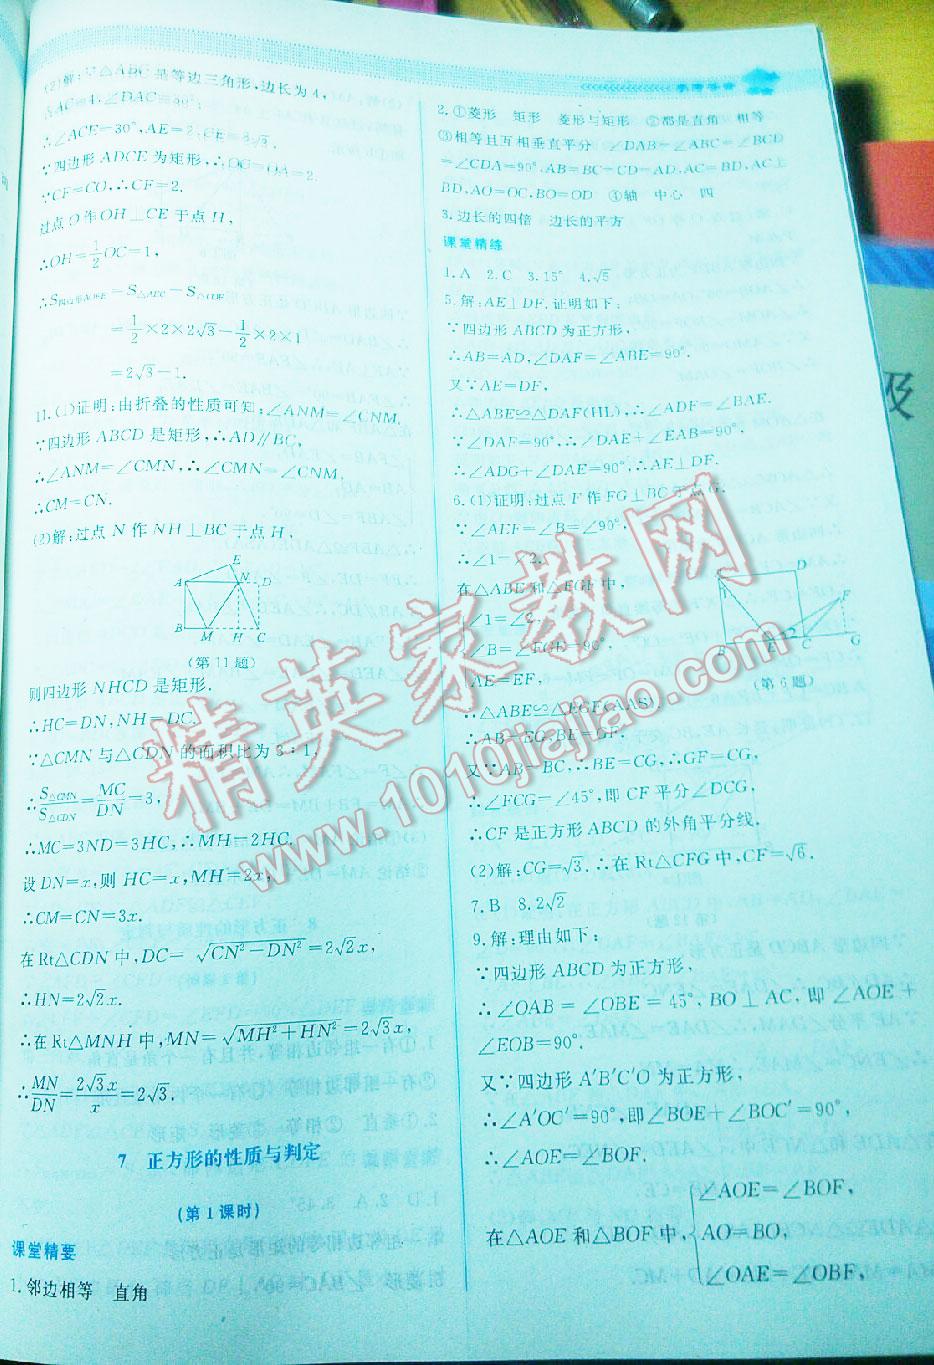 (2)解:∵△ABC 是等边三角形,边长为 4,
∴AC=4,∠DAC=30°.
∴∠ACE=30°,AE=2,CE=2√3.
∵四边形 ADCE 为矩形,∴OC=OA=2.
∵CF=CO,∴CF=2.
过点 O 作 OH⊥CE 于点 H,
∴OH=1/2 OC=1,
∴S四边形AOFE=S△AEC-S△COF
=1/2×2×2√3-1/2×2×1
=2√3-1.
11.(1)证明:由折叠的性质可知:∠ANM=∠CNM.
∵四边形 ABCD 是矩形,∴AD∥BC,
∴∠ANM=∠CMN,∴∠CMN=∠CNM,
∴CM=CN.
(2)解:过点 N 作 NH⊥BC 于点 H,
A E N D
B M H C
(第 11 题)
则四边形 NHCD 是矩形.
∴HC=DN,NH=DC.
∵△CMN 与△CDN 的面积比为 3∶1,
∴S△CMN/S△CDN=MC/DN=3,
∴MC=3ND=3HC,∴MH=2HC.
设 DN=x,则 HC=x,MH=2x,
∴CM=CN=3x.
在 Rt△CDN 中,DC=√(CN²-DN²)=2√2x,
∴HN=2√2x.
∴在 Rt△MNH 中,MN=√(MH²+HN²)=2√3x,
∴MN/DN=2√3x/x=2√3.
7 正方形的性质与判定
(第 1 课时)
课堂精要
1.邻边相等 直角
2.①菱形 矩形 菱形与矩形 ②都是直角 相等
③相等且互相垂直平分 ∠DAB=∠ABC=∠BCD
=∠CDA=90°,AB=BC=CD=AD,AC=BD,AC⊥
BD,AO=OC,BO=OD ④轴 中心 四
3.边长的四倍 边长的平方
课堂精练
1.A 2.C 3.15° 4.√5
5.解:AE⊥DF.证明如下:
∵四边形 ABCD 为正方形,
∴AB=AD,∠DAF=∠ABE=90°.
又∵AE=DF,
∴△ABE≌△DAF(HL),∴∠ADF=∠BAE.
∵∠DAF=90°,∴∠DAE+∠EAB=90°,
∴∠ADG+∠DAE=90°,∴AE⊥DF.
6.(1)证明:过点 F 作 FG⊥BC 于点 G.
∵∠AEF=∠B=∠90°,
∴∠1=∠2.
在△ABE 和△EGF 中,
∠1=∠2,
∠B=∠FGE=90°,
AE=EF,
(第 6 题)
∴△ABE≌△EGF(AAS).
∴AB=EG,BE=GF.
又∵AB=BC,∴BE=CG,∴GF=CG,
∴∠FCG=∠45°,即 CF 平分∠DCG,
∴CF 是正方形 ABCD 的外角平分线.
(2)解:CG=√3.∴在 Rt△CFG 中,CF=√6.
7.B 8.2√2
9.解:理由如下:
∵四边形 ABCD 为正方形,
∴∠OAB=∠OBE=45°,BO⊥AC,即∠AOE+
∠EOB=90°.
又∵四边形 A′B′C′O 为正方形,
∴∠A′OC′=90°,即∠BOE+∠BOC′=90°,
∴∠AOE=∠BOF.
在△AOE 和△BOF 中,
∠AOE=∠BOF,
AO=BO,
∠OAE=∠OBF,
精英家教网
www.1010jiajiao.com
级